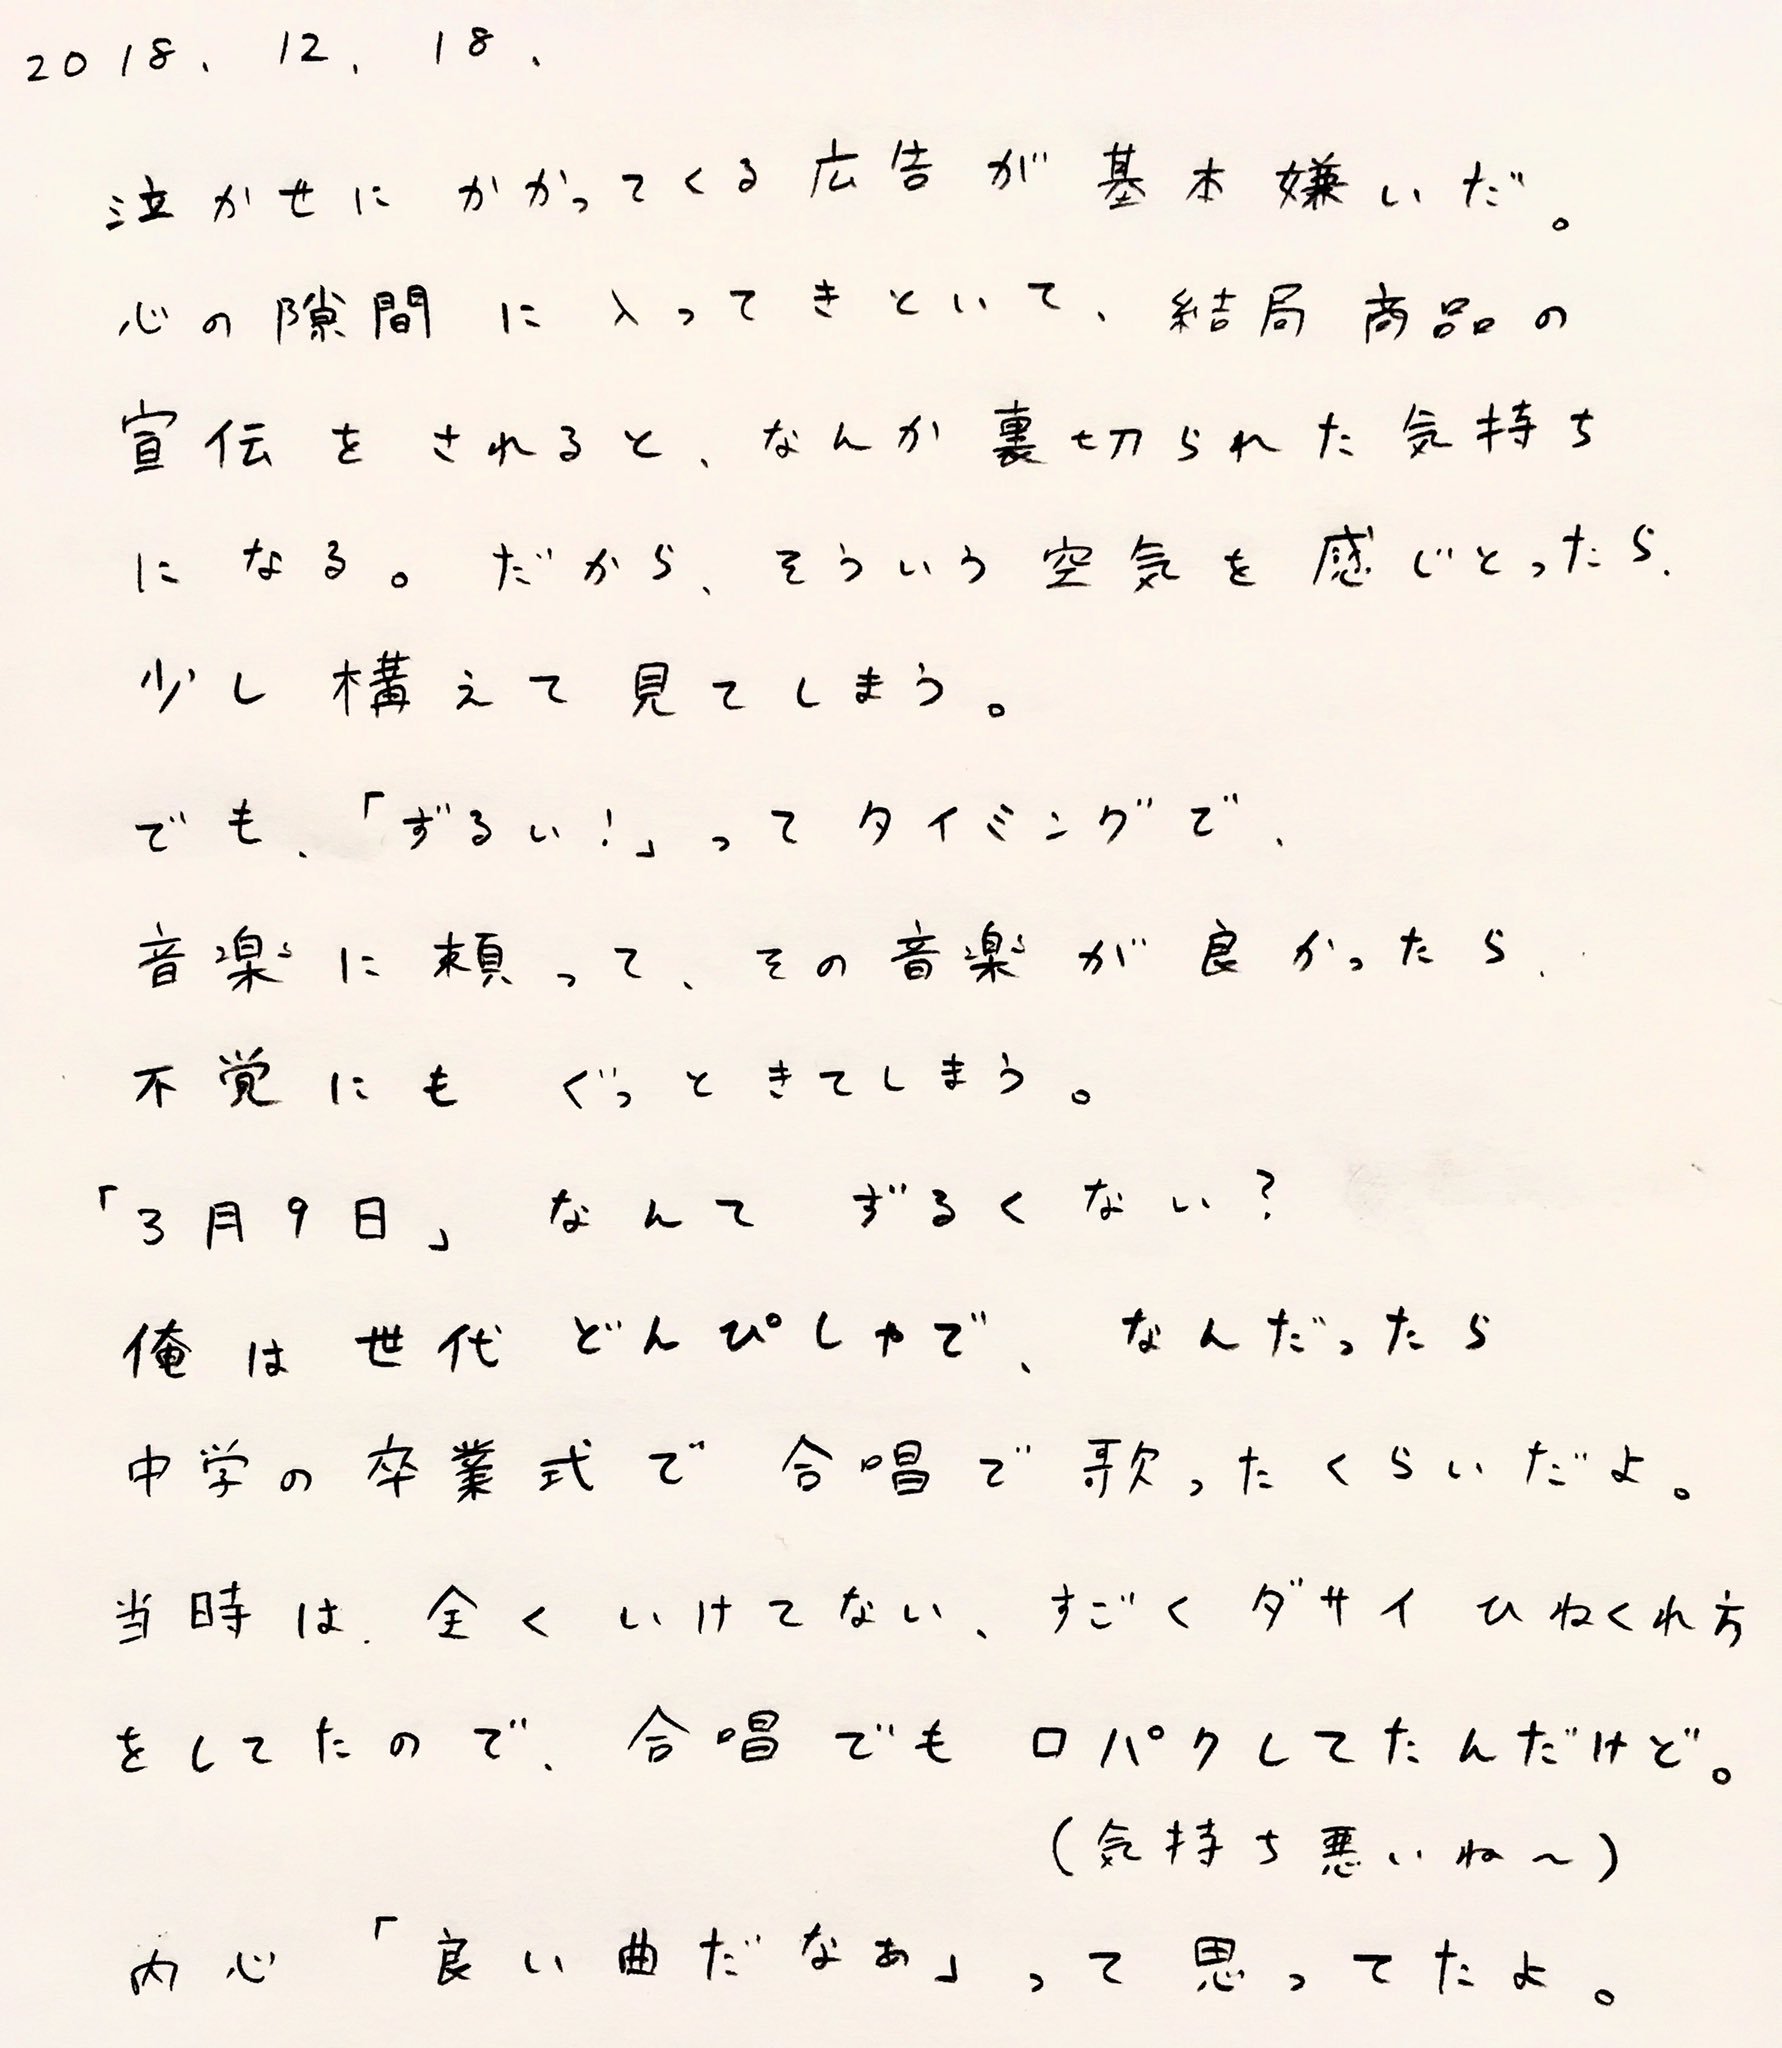 2018.12.18.
泣かせにかかってくる広告が基本嫌いだ。
心の隙間に入ってきといて、結局商品の
宣伝をされると、なんか裏切られた気持ち
になる。だから、そういう空気を感じとったら、
少し構えて見てしまう。
でも、「ずるい!」ってタイミングで、
音楽に頼って、その音楽が良かったら、
不覚にもぐっときてしまう。
「3月9日」なんてずるくない?
俺は世代どんぴしゃで、なんだったら
中学の卒業式で合唱で歌ったくらいだよ。
当時は、全くいけてない、すごくダサイひねくれ方
をしてたので、合唱でも口パクしてたんだけど。
(気持ち悪いね〜)
内心「良い曲だなぁ」って思ってたよ。